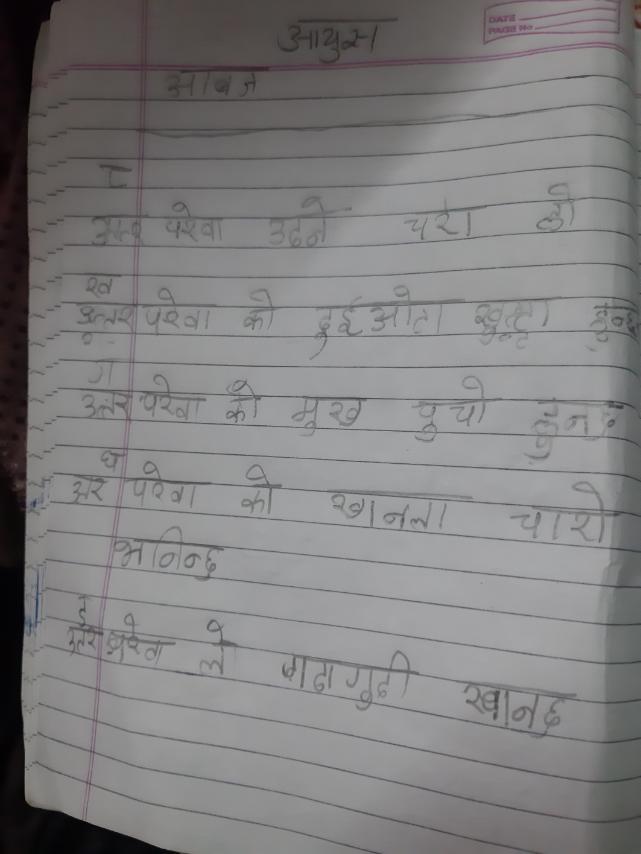 आयुस
DATE
PAGE No.
आवज
उत्तर परेवा उदने चरा हो
ख
उत्तर परेवा को दुईओटा खुट्टा हुन्छ
ग
उत्तर परेवा को मुख चुचो हुनछ
घ
परेवा को खानला चारो
भनिन्छ
उत्तर परेवा ले गढागुढी खानछ